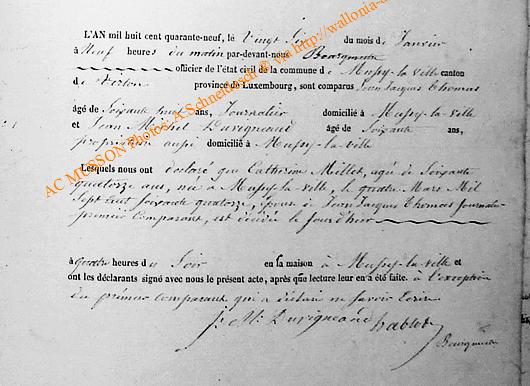 L'AN mil huit cent quarante-neuf, le Vingt Six du mois de Janvier
à Neuf heures du matin par-devant-nous Bourgmestre
officier de l'état civil de la commune de Mussy-la-Ville canton
de Virton province de Luxembourg, sont comparus Jean Jacques Thomas
âgé de Soixante huit ans, Journalier domicilié à Mussy-la-Ville
et Jean Michel Duvigneaud âgé de Soixante ans,
propriétaire aussi domicilié à Mussy-la-Ville
Lesquels nous ont déclaré que Catherine Millet, agée de Soixante
quatorze ans, née à Mussy-la-Ville, le quatre Mars Mil
Sept Cent Soixante quatorze, épouse de Jean Jacques Thomas Journalier
premier Comparant, est décédée le Jour d'hier
à quatre heures du Soir en sa maison à Mussy-la-Ville et
ont les déclarants signé avec nous le présent acte, après que lecture leur en a été faite. à l'exception
du premier comparant qui a déclaré ne savoir écrire
J: M: Duvigneaud
Bourgmestre
AC MUSSON Photos: A.Schneidesch © via http://wallonia-